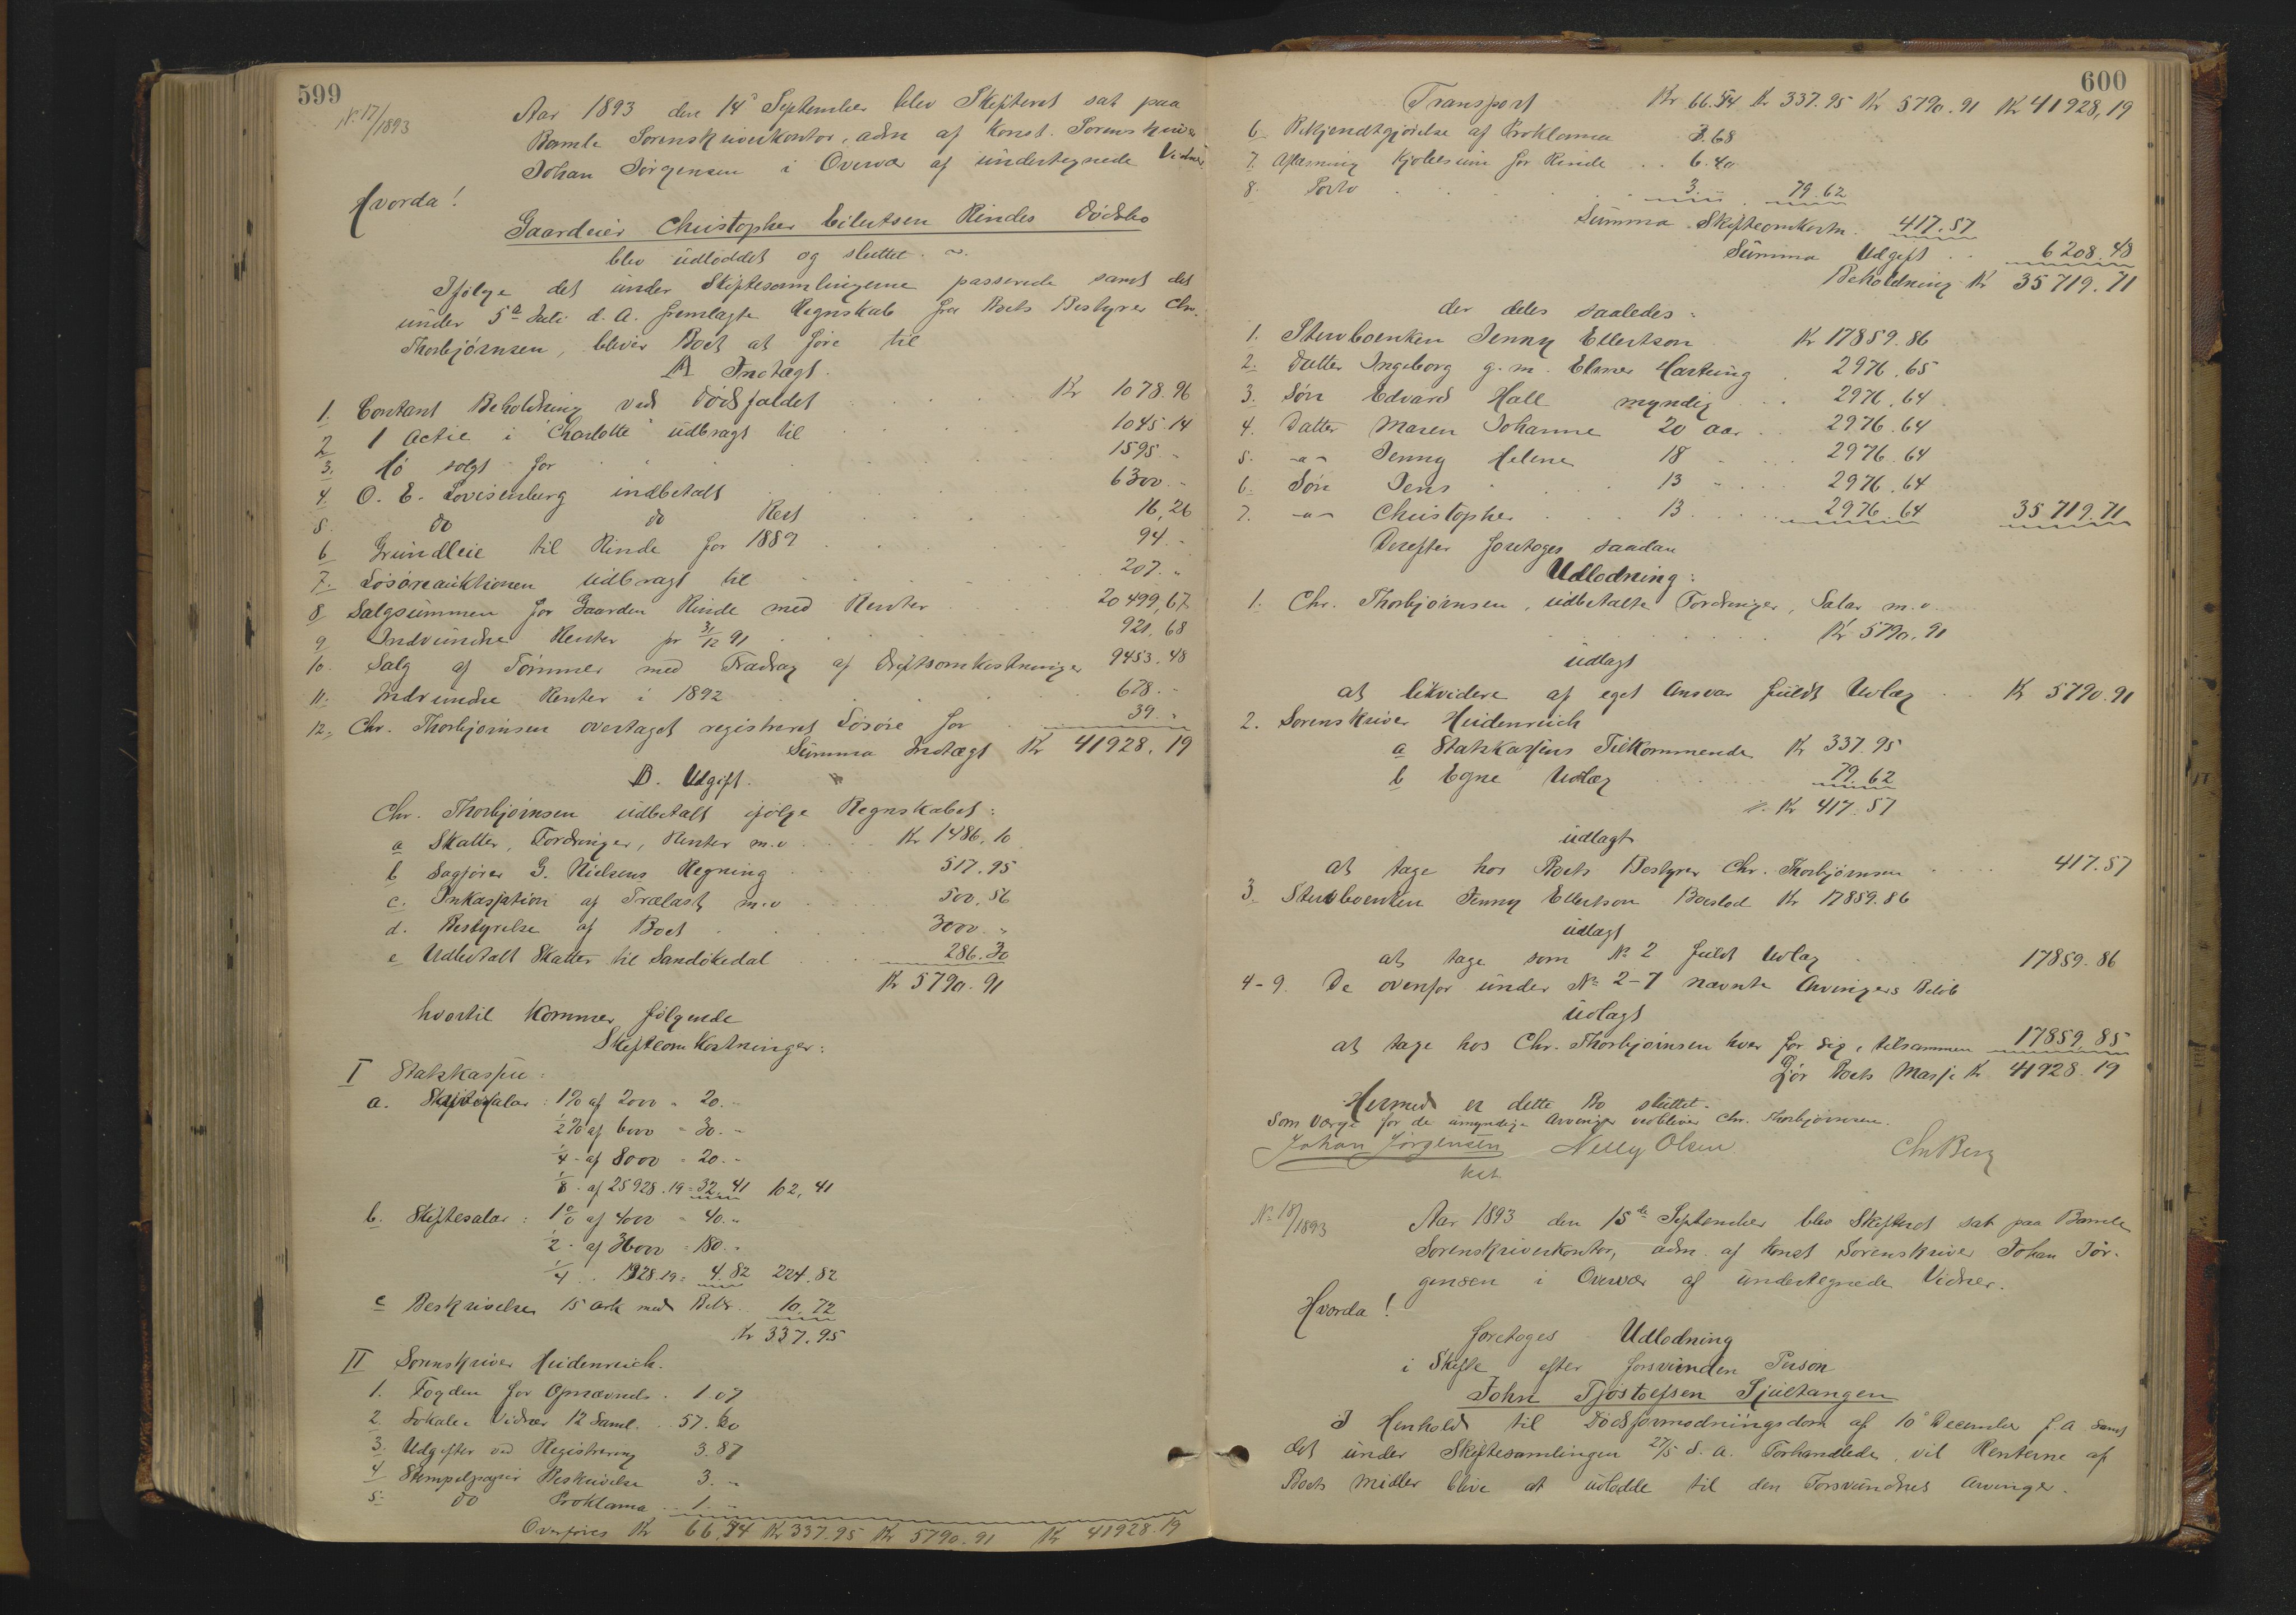 599
N. 17/1893
Aar 1893 den 14de September blev Skifteret sat paa
Bamle Sorenskriverkontor, adm af Konst. Sorenskriver
Johan Jørgensen i Overvær af undertegnede Vidner
Hvorda!
Gaardeier Christopher Eilertsen Rindes Dødsbo
blev udloddet og sluttet.
Ifølge det under Skiftesamlingerne passerede samt det
under 5te Juli d. A. fremlagte Regnskab fra Boets Bestyrer Chr.
Thorbjørnsen, bliver Boet at føre til
A Indtægt.
1. Contant Beholdning ved Dødsfaldet Kr 1078.96
2 1 Actie i "Charlotte" udbragt til 1045.14
3. Hø solgt for 1595 "
4. O. E. Lovisenberg indbetalt 6300. "
5. do do Rest 16,26
6 Grundleie til Rinde for 1889 94. "
7. Løsøreauktionen udbragt til 207. "
8 Salgsummen for Gaarden Rinde med Renter 20499,67
9 Indvundne Renter pr 31/12 91 921,68
10. Salg af Tømmer med Fradrag af Driftsomkostninger 9453.48
11. Indvundne Renter i 1892 678. "
12. Chr. Thorbjørnsen overtaget registreret Løsøre for 39. "
Summa Indtægt Kr 41928.19
B. Udgift.
Chr. Thorbjørnsen udbetalt ifølge Regnskabet:
a Skatter, Fordringer, Renter m.v. Kr 1486.10
b Sagfører G. Nielsens Regning 517.95
c. Inkassation af Trælast m.v 500.56
d. Bestyrelse af Boet 3000. "
e Udbetalt Skatter til Sandøkedal 286.30
Kr 5790.91
hvortil kommer følgende
Skifteomkostninger:
I Statskassen:
a. : 1% af 2000 = 20. "
1/2% af 6000 = 30. "
1/4 - af 8000 = 20. "
1/8 - af 25928.19 = 32.41 102,41
b. Skiftesalar: 1% af 4000 = 40. "
1/2 - af 36000 = 180. "
1/4 . . 1928.19 = 4.82 224.82
c Beskrivelse 15 Ark med Bekr. 10.72
Kr 337.95
II Sorenskriver Heidenreich.
1. Fogden for Opnævnds. 1.07
2. Lokale & Vidner 12 Saml. 57.60
3. Udgifter ved Registrering 3.87
4 Stempelpapir Beskrivelse 3. "
5. do Proklama 1. "
Overføres Kr 66.54 Kr 337.95 Kr 5790.91 Kr 41928.19
600
Transport Kr 66.54 Kr 337.95 Kr 5790.91 Kr 41928,19
6. Bekjendtgjørelse af Proklama 3.68
7. Aflæsning for Rinde 6.40
8. Porto 3. " 79.62
Summa Skifteomkostn. 417.57
Summa Udgift 6208.48
Beholdning Kr 35719.71
der deles saaledes:
1. Stervboenken Jenny Ellertson Kr 17859.86
2. Datter Ingeborg g. m. Elmer Hartung 2976.65
3. Søn Edvard Hall myndig 2976.64
4. Datter Maren Johanne 20 aar 2976.64
5. -"- Jenny Helene 18 " 2976.64
6. Søn Jens 13 " 2976.64
7. -"- Christopher 13 2976.64 35719.71
Derefter foretoges saadan
Udlodning:
1. Chr. Thorbjørnsen, udbetalte Fordringer, Salar m.v.
Kr 5790.91
udlagt
at likvidere af eget Ansvar fuldt Udlæg Kr 5790.91
2. Sorenskriver Heidenreich
a Statskassens Tilkommende Kr 337.95
b Egne Udlæg 79.62
Kr 417.57
udlagt
at tage hos Boets Bestyrer Chr. Thorbjørnsen 417.57
3. Stervboenken Jenny Ellertson Boeslod Kr 17859.86
udlagt
at tage som No 2 fuldt Udlæg 17859.86
4-9. De ovenfor under No 2-7 nævnte Arvingers Beløb
udlagt
at tage hos Chr. Thorbjørnsen hver for sig, tilsammen 17859.85
Gjør Boets Masse Kr 41928.19
Hermed er dette Bo sluttet.
Som Værge for de umyndige Arvinger vedbliver Chr. Thorbjørnsen.
Johan Jørgensen Nelly Olsen Chr Berg
kst.
No 18/1893
Aar 1893 den 15de September blev Skifteret sat paa Bamle
Sorenskriverkontor, adm. af Konst Sorenskriver Johan Jør-
gensen i Overvær af undertegnede Vidner.
Hvorda!
foretoges Udlodning
i Skifte efter forsvunden Person
John Tjøstolfsen Sjultangen
I Henhold til Dødsformodningsdom af 10de December f. A samt
det under Skiftesamlingen 27/5 d. A. Forhandlede, vil Renterne af
Boets Midler blive at udlodde til den Forsvundnes Arvinger.